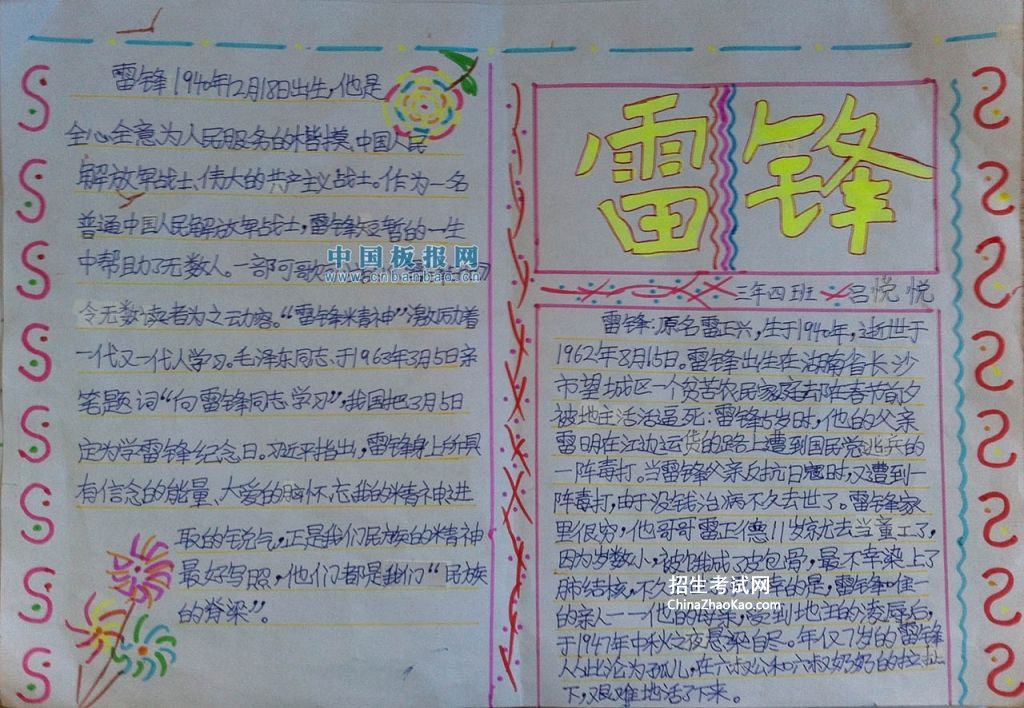 雷锋1940年12月18日出生,他是
全心全意为人民服务的楷摸、中国人民
解放军战士、伟大的共产主义战士。作为一名
普通中国人民解放军战士,雷锋短暂的一生
中帮助了无数人。一部可歌
令无数读者为之动容。“雷锋精神”激励着
一代又一代人学习。毛泽东同志于1963年3月5日亲
笔题词“向雷锋同志学习”,我国把3月5日
定为学雷锋纪念日。习近平指出,雷锋身上所具
有信念的能量、大爱的胸怀、忘我的精神、进
取的锐气,正是我们民族的精神
最好写照,他们都是我们“民族
的脊梁”。
中国板报网
www.cnbanbao.cn
雷锋
三年四班 吕悦悦
雷锋:原名雷正兴,生于1940年,逝世于
1962年8月15日。雷锋出生在湖南省长沙
市望城区一个贫苦农民家庭去年春节前夕
被地主活活逼死:雷锋5岁时,他的父亲
雷明在江边运货的路上遭到国民党逃兵的
一阵毒打。当雷锋父亲反抗日寇时,又遭到一
阵毒打,由于没钱治病不久去世了。雷锋家
里很穷,他哥哥雷正德11岁就去当童工了,
因为岁数小,被饿成了皮包骨,最不幸染上了
肺结核,不久 幸的是,雷锋唯一
的亲人——他的母亲,受到地主的凌辱后,
于1947年中秋之夜悬梁自尽。年仅7岁的雷锋
人此沦为孤儿,在六叔公和六叔奶奶的拉扯
下,艰难地活了下来。
招生考试网
ChinaZhaoKao.com